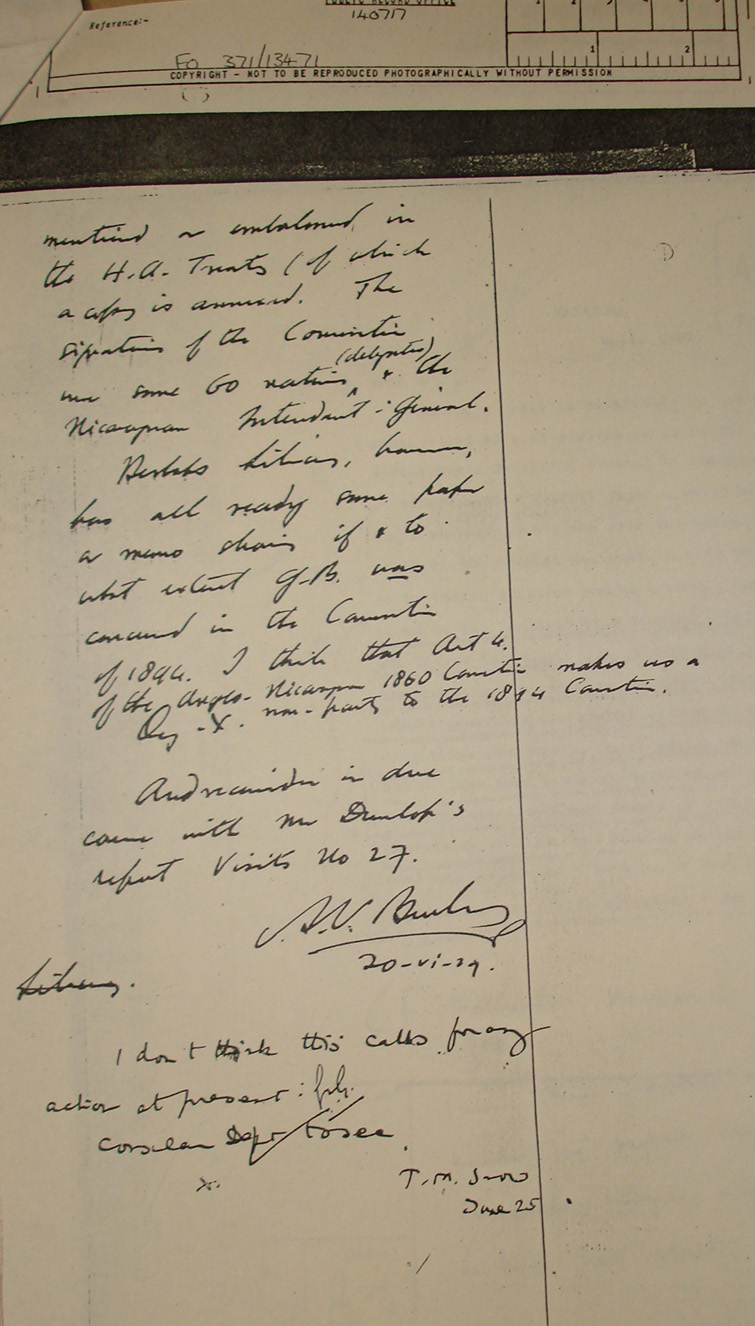 PUBLIC RECORD OFFICE
140717
1 2 3 4 5
1 2
Reference:-
FO 371/13471
COPYRIGHT - NOT TO BE REPRODUCED PHOTOGRAPHICALLY WITHOUT PERMISSION
mentioned or embalmed in
the H.A. Treaty (of which
a copy is annexed. The
signatories of the Convention
(delegates)
were some 60 & the
Nicaraguan Intendant-General.
Perhaps Library, however,
has all ready some paper
or memo showing if & to
what extent G.B. was
concerned in the Convention
of 1894. I think that Art 4.
of the Anglo-Nicaraguan 1860 Convention makes us a
non-party to the 1894 Convention.
And in due
course with Mr Dunlop's
report Visits No 27.
20-vi-29.
Library.
I don't think this calls for any
action at present:
Consular Dept to see.
X.
T. M. Snow
June 25